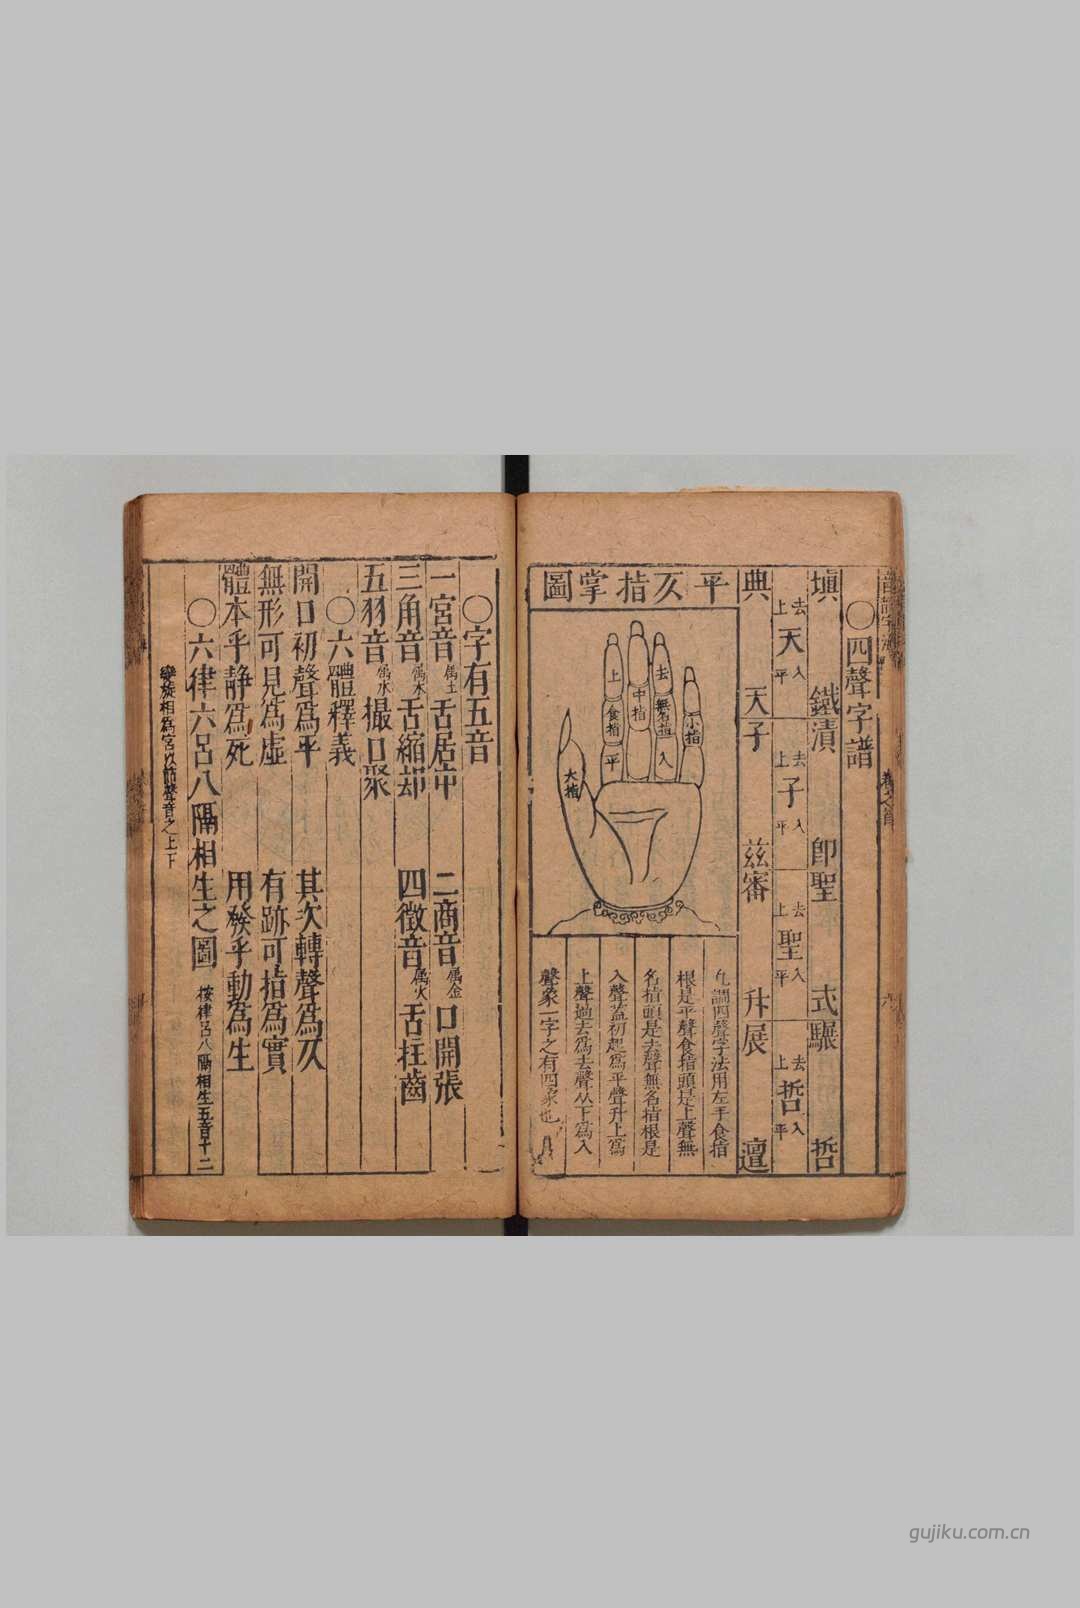 卷之首
六
○四聲字譜
塡 鐵瀆 卽聖 式驟 哲
去 天 入
上 平
去 子 入
上 平
去 聖 入
上 平
去 哲 入
上 平
典 天子 兹審 升展 邅
平仄指掌圖
小指
去 無名指 入
中指
上 食指 平
大指
凡調四聲字法用左手食指
根是平聲食指頭是上聲無
名指頭是去聲無名指根是
入聲蓋初起爲平聲升上爲
上聲過去爲去聲从下爲入
聲象一字之有四象也
○字有五音
一宮音屬土舌居中 二商音屬金口開張
三角音屬木舌縮却 四徵音屬火舌拄齒
五羽音屬水撮口聚
○六體釋義
開口初聲爲平 其次轉聲爲仄
無形可見爲虛 有跡可指爲實
體本乎静爲死 用發乎動爲生
○六律六呂八隔相生之圖 按律呂八隔相生五音十二
變旋相爲宮以節聲音之上下
gujiku.com.cn